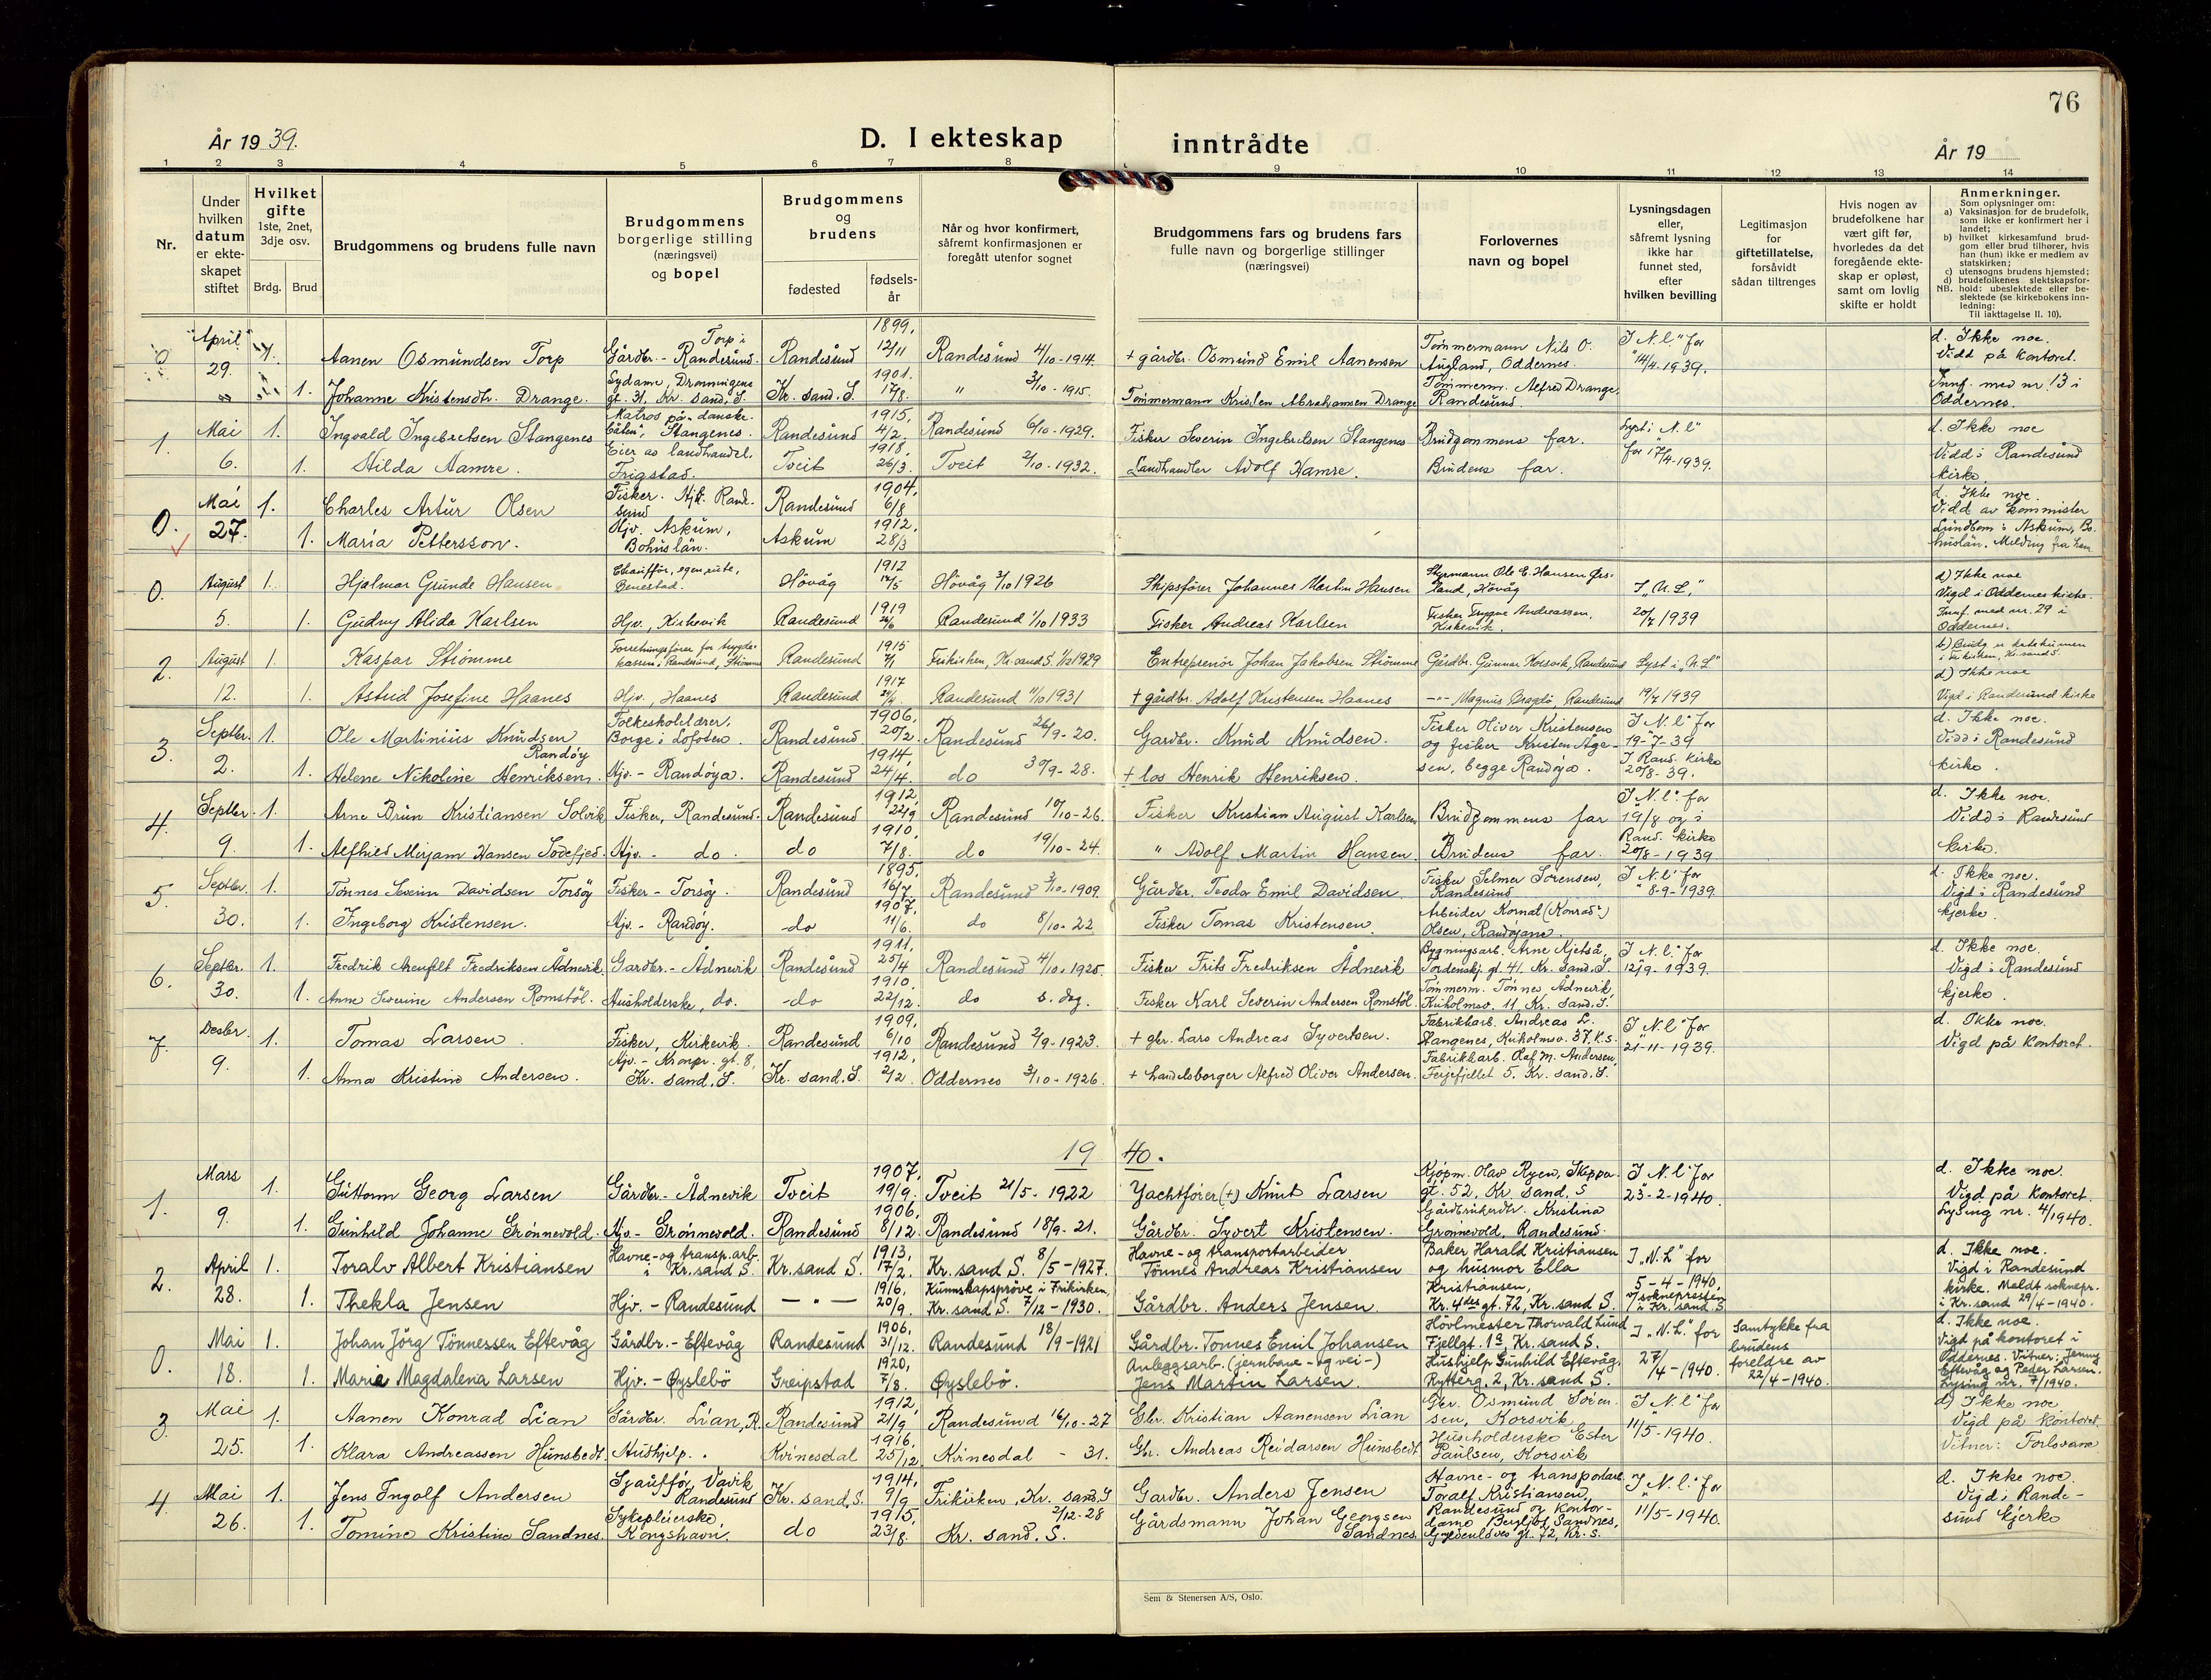 76
År 19 39.
D. I ekteskap inntrådte
År 19
1 2 3 4 5 6 7 8 9 10 11 12 13 14
Nr.
Under hvilken datum er ekteskapet stiftet
Hvilket gifte 1ste, 2net, 3dje osv.
Brdg. Brud
Brudgommens og brudens fulle navn
Brudgommens borgerlige stilling (næringsvei) og bopel
Brudgommens og brudens
fødested
fødselsår
Når og hvor konfirmert, såfremt konfirmasjonen er foregått utenfor sognet
Brudgommens fars og brudens fars fulle navn og borgerlige stillinger (næringsvei)
Forlovernes navn og bopel
Lysningsdagen eller, såfremt lysning ikke har funnet sted, efter hvilken bevilling
Legitimasjon for giftetillatelse, forsåvidt sådan tiltrenges
Hvis nogen av brudefolkene har vært gift før, hvorledes da det foregående ekteskap er opløst, samt om lovlig skifte er holdt
Anmerkninger.
Som oplysninger om:
a) Vaksinasjon for de brudefolk, som ikke er konfirmert her i landet;
b) hvilket kirkesamfund brudgom eller brud tilhører, hvis han (hun) ikke er medlem av statskirken;
c) utensogns brudens hjemsted;
d) brudefolkenes slektskapsforhold: ubeslektede eller beslektede (se kirkebokens innledning:
NB.
Til iakttagelse II. 10).
0 April 29. 1. Aanen Osmundsen Torp Gårdbr. - Torp i Randesund. Randesund 1899, 12/11 Randesund 4/10-1914. + gårdbr. Osmund Emil Aanensen Tømmermann Nils O. Augland, Oddernes. I "N.l." for 14/4-1939. d. Ikke noe. Vidd på kontoret.
1. Johanne Kristensdtr. Drange. Sydame, Dronningens gt. 31, Kr. sand. S. Kr. sand. S. 1901. 17/8. " 3/10-1915. Tømmermann Kristen Abrahamsen Drange Tømmerm. Alfred Drange, Randesund. Innf. med nr 13 i Oddernes.
1. Mai 6. 1. Ingvald Ingebretsen Stangenes Matros på "danskebåten", Stangenes. Randesund 1915, 4/2. Randesund 6/10-1929. Fisker Severin Ingebretsen Stangenes Brudgommens far. Lyst i "N.l" for 17/4-1939. d. Ikke noe Vidd i Randesund kirke.
1. Hilda Hamre. Eier av landhandel, Frigstad. Tveit 1918, 26/3. Tveit 2/10-1932. Landhandler Adolf Hamre. Brudens far.
0. Mai 27. 1. Charles Artur Olsen Fisker. Randesund Randesund 1904, 6/8 d. Ikke noe. Vidd av kommister Lundbom i Askum, Bohuslän. Melding fra ham
1. Maria Pettersson. Hjv. Askum, Bohuslän. Askum 1912, 28/3
0. August 5. 1. Hjalmar Grunde Hansen Chauffør, egen rute, Benestad. Høvåg 1912 Høvåg 3/10 1926 Skipsfører Johannes Martin Hansen Styrmann Ole E. Hansen Høvåg I "N.L." 20/7 1939 d) Ikke noe Vigd i Oddernes kirke. Innf. med nr. 29 i Oddernes.
1. Gudny Alida Karlsen Hjv., Kirkevik Randesund 1919 Randesund 1/10 1933 Fisker Andreas Karlsen Fisker Trygve Andreassen, Kirkevik.
2. August 12. 1. Kaspar Strømme Forretningsfører for trygdekassen, Randesund, Strømme Randesund 1915 7/1 Frikirken, Kr.sand S. 1929 Entreprenør Johan Jakobsen Strømme Gårdbr. Gunnar Korsvik, Randesund Lyst i "N.L" 19/7 1939 d) Ikke noe Vigd i Randesund kirke
1. Astrid Josefine Haanes Hjv., Haanes Randesund 1917 Randesund 11/10 1931 + gårdbr. Adolf Kristensen Haanes -"- Magnus Bragdø, Randesund
3. Septbr. 2. 1. Ole Martinius Knudsen Randøy Folkeskolelærer, Borge i Lofoten. Randesund 1906, 20/2. Randesund 26/9-20. Gardbr. Knud Knudsen. Fisker Oliver Kristensen og fisker Kristen Aagesen, begge Randøya. I "N.l" for 19-7-39 I Rand. kirke 20/8-39. d. Ikke noe. Vidd i Randesund kirke.
1. Helene Nikoline Henriksen. Hjv. - Randøya. Randesund 1914, 24/4. do 30/9-28. + los Henrik Henriksen.
4. Septbr. 9. 1. Arne Brun Kristiansen Solvik Fisker, Randesund. Randesund 1912, 22/9 Randesund 10/10-26. Fisker Kristian August Karlsen Brudgommens far I "N.l." for 19/8 og i Rand. kirke 20/8-1939 d. Ikke noe. Vidd i Randesund kirke.
1. Alfhild Mirjam Hansen Sodefjed. Hjv. - do. do 1910. 7/8. do 19/10-24. " Adolf Martin Hansen. Brudens far.
5. Septbr. 30. 1. Tønnes Severin Davidsen Torsøy Fisker - Torsøy. Randesund 1895, 16/7 Randesund 3/10-1909. Gårdbr. Teodor Emil Davidsen Fisker Selmer Sørensen, Randesund I "N.l" for 8-9-1939 d. Ikke noe. Vigd i Randesund kjerke.
1. Ingeborg Kristensen. Hjv. - Randøy. -do 1907, 11/6. do 8/10-22 Fisker Tomas Kristensen Arbeider Kornat (Konrad?) Olsen, Randøyane.
6. Septbr. 30. 1. Fredrik Arenfelt Fredriksen Ådnevik Gardbr. - Ådnevik Randesund 1911, 25/4 Randesund 4/10-1925. Fisker Frits Fredriksen Ådnevik Bygningsarb. Arne Kjetså, Tordenskj. gt. 41. Kr. sand. S. I "N.l." for 12/9-1939. d. Ikke noe. Vigd i Randesund kjerke.
1. Anne Severine Andersen Romstøl. Husholderske, do. -do 1910. 22/12. do s. dag. Fisker Karl Severin Andersen Romstøl. Tømmerm. Tønnes Ådnevik, Kuholmsv. 11, Kr. sand. S.
7. Desbr. 9. 1. Tomas Larsen Fisker, Kirkevik. Randesund 1909, 6/10 Randesund 2/9-1923. + gbr. Lars Andreas Syvertsen. Fabrikkarb. Andreas L. Stangenes, Kuholmsv. 37. K.S. I "N.l" for 21-11-1939. d. Ikke noe. Vigd på kontoret.
1. Anna Kristine Andersen. Hjv. - Kronpr. gt. 8, Kr. sand. S. Kr. sand. S. 1912, 2/2. Oddernes 3/10-1926. + handelsborger Alfred Oliver Andersen. Fabrikkarb. Olaf M. Andersen, Ferjefjellet 5. Kr. sand. S.
19 40.
1. Mars 9. 1. Guttorm Georg Larsen Gårdbr. - Ådnevik Tveit 1907, 19/9. Tveit 21/5-1922 Yachtfører (+) Knut Larsen Kjøpm. Olav Ryen, Skippergt. 52, Kr. sand. S I "N.l" for 23-2-1940. d. Ikke noe. Vigd på kontoret. Lysing nr. 4/1940.
1. Gunhild Johanne Grønnevold. Hjv. - Grønnevold. Randesund 1906, 8/12. Randesund 18/9-21. Gårdbr. Syvert Kristensen. Gårdbrukerdtr. Kristina Grønnevold, Randesund
2. April 28. 1. Toralv Albert Kristiansen Havne- og transp.arb. i Kr.sand S. Kr.sand S. 1913, 17/2. Kr.sand S. 8/5-1927. Havne- og transportarbeider Tønnes Andreas Kristiansen Baker Harald Kristiansen og husmor Ella Kristiansen, Kr. 4des gt. 72, Kr.sand S. I "N.L" for 5-4-1940. v/ soknepresten i Kr.sand S d. Ikke noe. Vigd i Randesund kirke. Meldt soknepr. i Kr.sand 29/4-1940.
1. Thekla Jensen Hjv. - Randesund — " — 1916, 20/9. Kunnskapsprøve i Frikirken, Kr.sand S. 7/12-1930. Gårdbr. Anders Jensen
0. Mai 18. 1. Johan Jörg Tønnessen Eftevåg Gårdbr. - Eftevåg Randesund 1906, 31/12. Randesund 18/9-1921 Gårdbr. Tønnes Emil Johansen Høvlmester Thorvald Lund Fjellgt. 1a, Kr.sand S. I "N.L." for 27/4-1940. Samtykke fra brudens foreldre av 22/4-1940. d. Ikke noe. Vigd på kontoret i Oddernes. Vitner: Jenny Eftevåg og Peder Larsen. Lysing nr. 7/1940.
1. Maria Magdalena Larsen Hjv. - Øyslebö Greipstad 1920, 7/8. Øyslebö. Anleggsarb. (jernbane- og vei-) Jens Martin Larsen. Hushjelp Gunhild Eftevåg, Rytterg. 2, Kr.sand S.
3 Mai 25. 1. Aanen Konrad Lian Gårdbr. Lian, R. Randesund 1912, 21/9 Randesund 16/10-27 Gbr. Kristian Aanensen Lian Gbr. Osmund Sørensen, Korsvik I "N.l" for 11/5-1940. d) Ikke noe Vigd på kontoret. Vitner: Forlovarne
1. Klara Andreassen Hunsbedt. Hushjelp. Kvinesdal 1916, 25/12 Kvinesdal - 31. Gbr. Andreas Reidarsen Hunsbedt Husholderske Ester Paulsen, Korsvik
4 Mai 26. 1. Jens Ingolf Andersen Sjauffør, Vavik Randesund Kr. sand. S. 1914, 9/9 Frikirken, Kr. sand. S 2/12-28 Gardbr. Anders Jensen Havne- og transportarb. Toralf Kristiansen, Randesund og kontordame Bergljot Sandnes, Gyldenløves gt. 72, Kr. S. I "N.l" for 11/5-1940. d. Ikke noe. Vigd i Randesund kjerke
1. Tomine Kristine Sandnes. Sykepleierske Kongshavn. do 1915, 23/8. Kr. sand. S. Gårdsmann Johan Georgsen Sandnes
Sem & Stenersen A/S, Oslo.